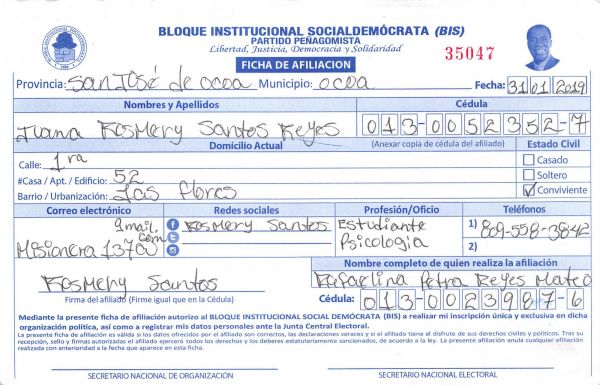 BLOQUE INSTITUCIONAL SOCIALDEMÓCRATA (BIS)
PARTIDO PEÑAGOMISTA
Libertad, Justicia, Democracia y Solidaridad
35047
FICHA DE AFILIACION
Provincia: San José de ocoa Municipio: ocoa Fecha: 31 01 2019
Nombres y Apellidos Cédula
Juana Rosmery Santos Reyes 013-0052352-7
Domicilio Actual (Anexar copia de cédula del afiliado) Estado Civil
Calle: 1ra Casado
#Casa / Apt. / Edificio: 52 Soltero
Barrio / Urbanización: Las flores Conviviente
Correo electrónico Redes sociales Profesión/Oficio Teléfonos
Misionera13700 gmail.com Rosmery Santos Estudiante Psicologia 1) 809-558-3842
2)
Rosmery Santos
Firma del afiliado (Firme igual que en la Cédula)
Nombre completo de quien realiza la afiliación
Rafaelina Petra Reyes Mateo
Cédula: 013-0023987-6
Mediante la presente ficha de afiliación autorizo al BLOQUE INSTITUCIONAL SOCIAL DEMÓCRATA (BIS) a realizar mi inscripción única y exclusiva en dicha
organización política, así como a registrar mis datos personales ante la Junta Central Electoral.
La presente ficha de afiliación es válida si los datos ofrecidos por el afiliado son correctos, las declaraciones veraces y si el afiliado tiene el disfrute de sus derechos civiles y políticos. Tras su
recepción, sello y firmas autorizadas el afiliado ejercerá todos los derechos y los deberes estatutariamente sancionados, de acuerdo a la ley. La presente afiliación anula cualquier afiliación
realizada con anterioridad a la fecha que aparece en esta ficha.
SECRETARIO NACIONAL DE ORGANIZACIÓN SECRETARIO NACIONAL ELECTORAL